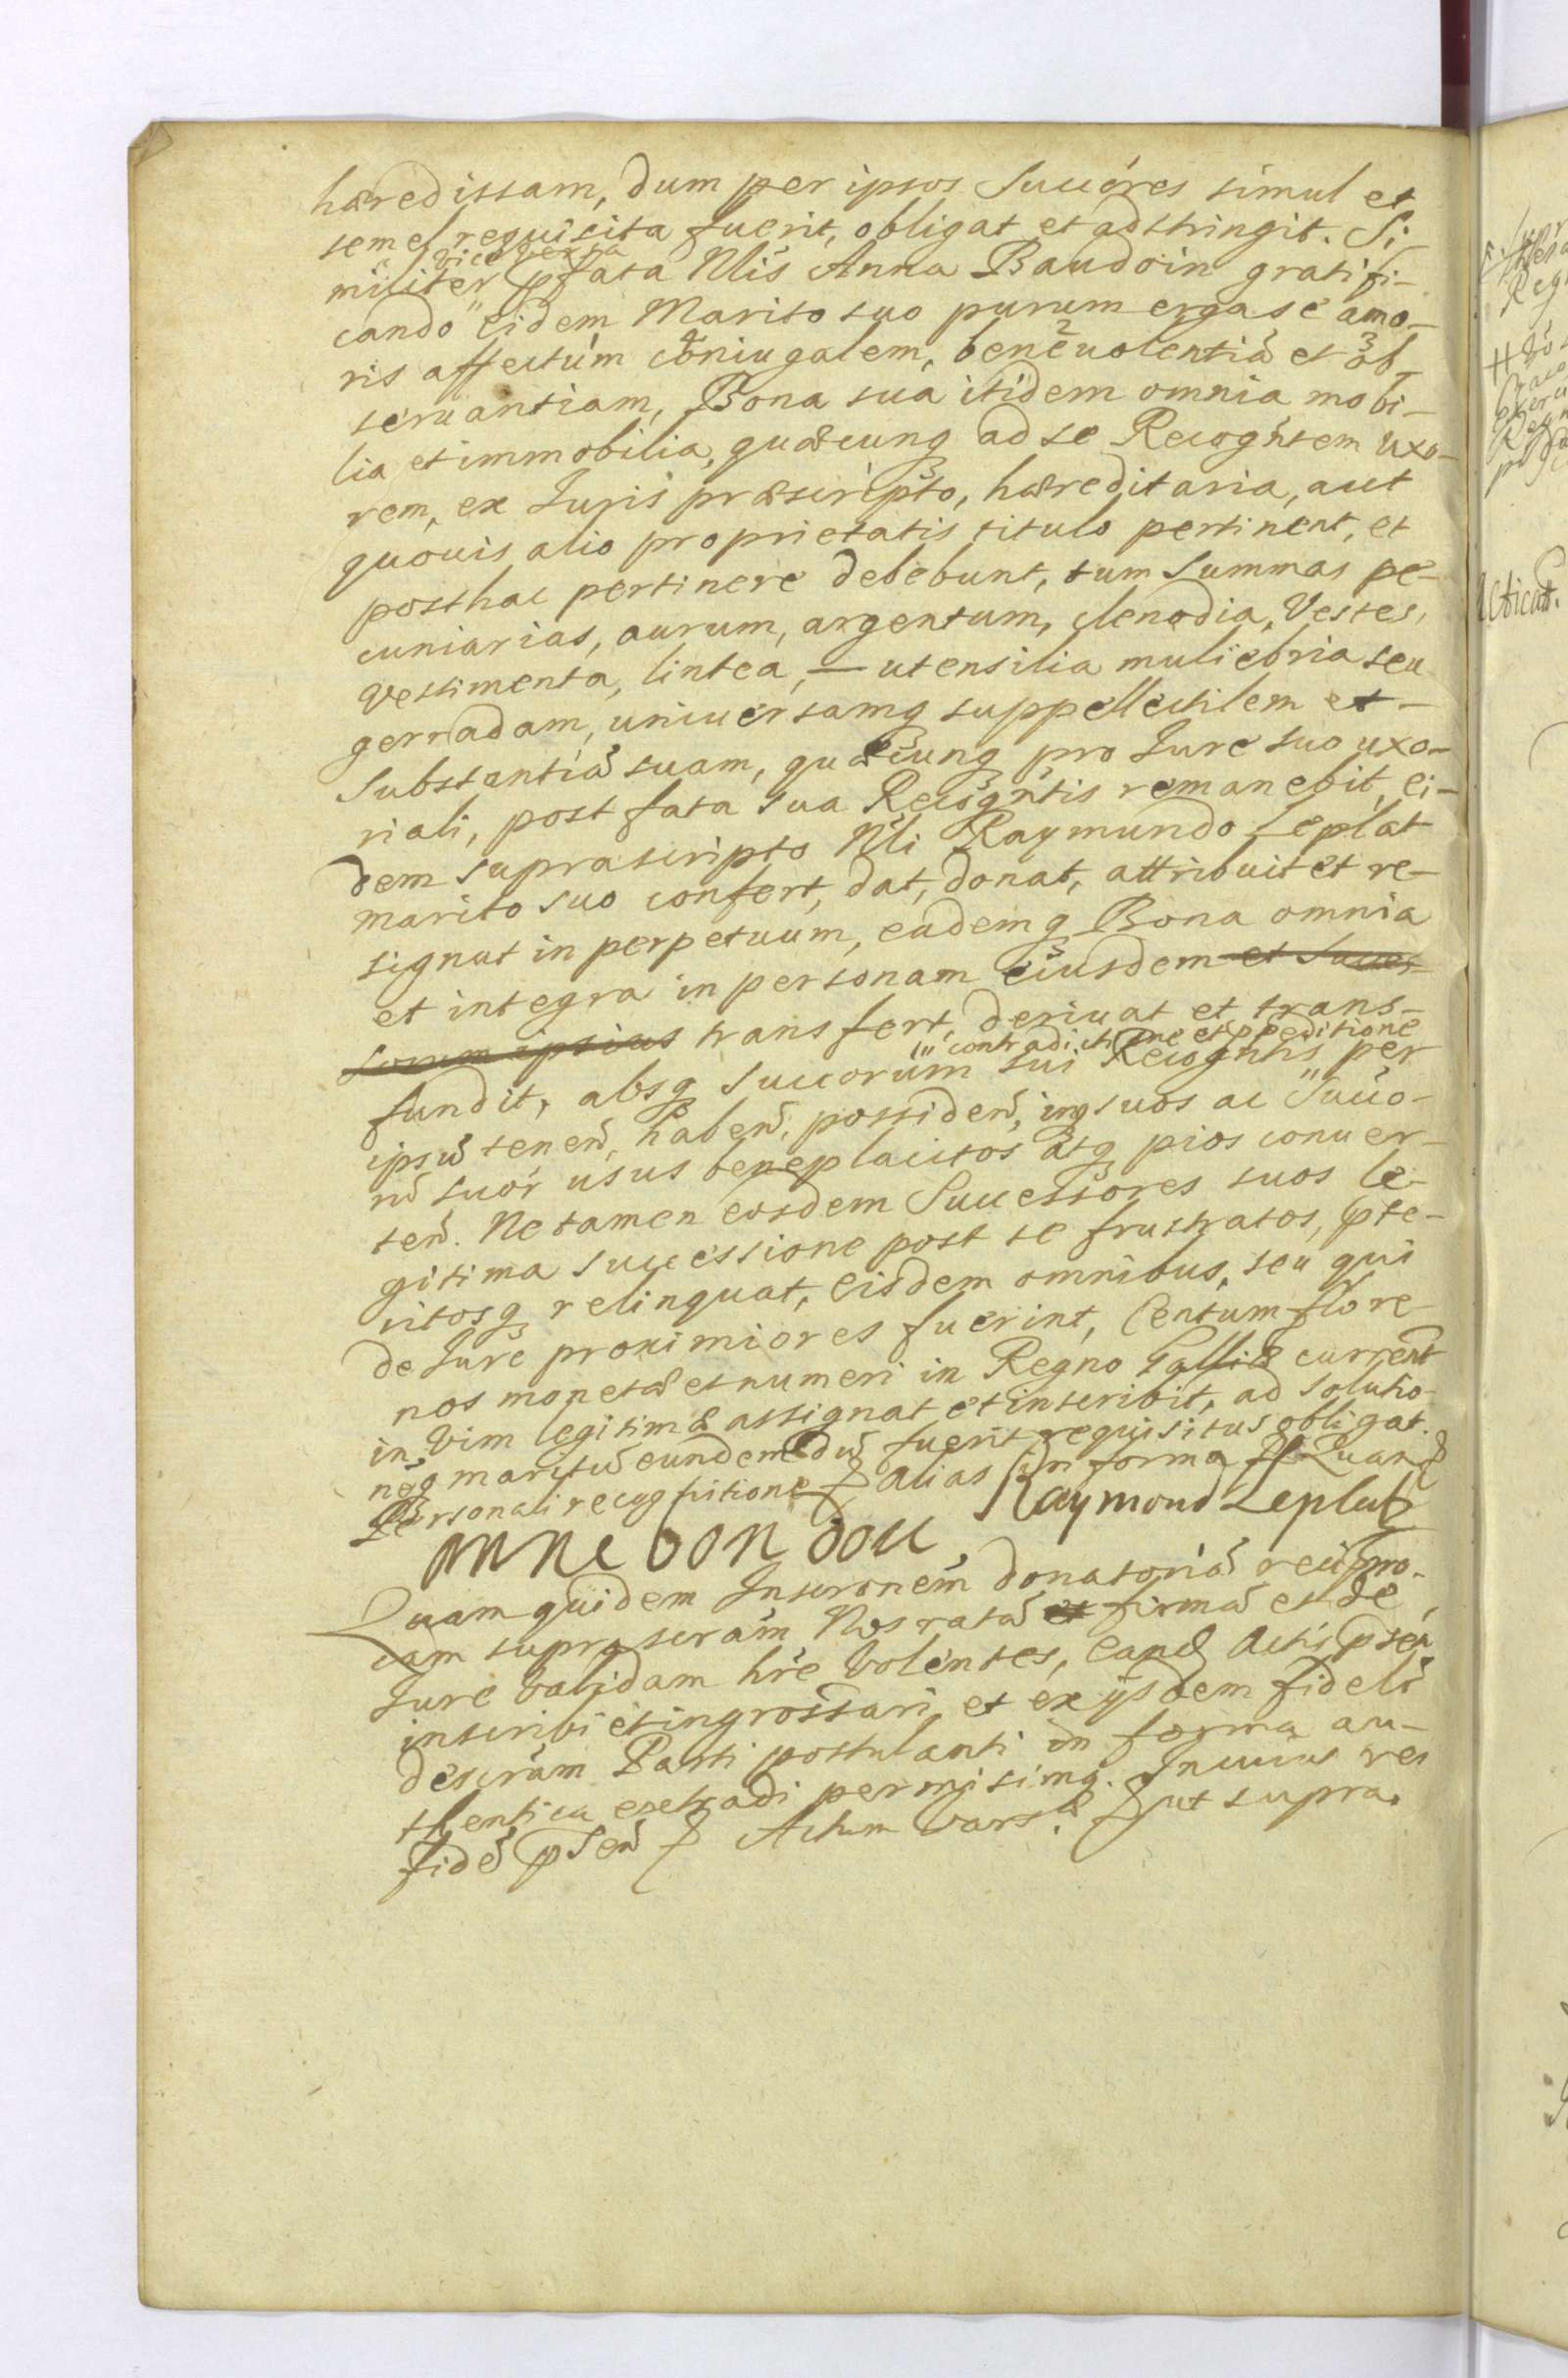 hæredissam, dum per ipsos Succóres simul et
semel requisita fuerit, obligat et adstringit. Si-
vice versa
militer pfata Nlis Anna Baudoin gratifi-
cando eidem Marito suo purum erga se amo-
ris affectum coniugalem, beneuolentiã et ob-
seruantiam, Bona sua itidem omnia mobi-
lia et immobilia, quæcunq ad se Recogntem uxo-
rem, ex Iuris præscripto, hæreditaria, aut
quouis alio proprietatis titulo pertinent, et
posthac pertinere debebunt, tum summas pe-
cuniarias, aurum, argentum, clenodia, Vestes,
vestimenta, lintea, — utensilia muliebria seu
gerradam, uniuersamq suppellectilem et —
Substantiã suam, quæcunq pro Iure suo uxo-
riali, post fata sua Recogntis remanebit, ei-
dem suprascripto Nli Raymundo Leplat
marito suo confert, dat, donat, attribuit et re-
signat in perpetuum, eademq Bona omnia
et integra in personam eiusdem et Succes-
sorum ipsius transfert, deriuat et trans-
contradictione et ppeditione
fundit, absq Succorum sui Recogntis per
ipsũ tenen̄, haben̄, possiden̄, inq suos ac Succo-
rũ suor usus beneplacitos atq pios conuer-
ten̄. Ne tamen eosdem Successores suos le-
gitima successione post se frustratos, pte-
ritosq relinquat, eisdem omnibus, seu qui
de Iure proximiores fuerint, Centum flore-
nos monetæ et numeri in Regno Galliæ current
in vim legitimæ assignat et inscribit, ad solutio-
neq maritũ eundem dũ fuerit requisitus obligat.
Personali recognitione alias in forma
Raymond Leplat
anne bon dou
Quam quidem Inscronem donatoriã recipro-
cam suprascràm Nos ratã et firmã et de
Iure validam hre volentes, eand Actis psen
inscribi et ingrossari et ex ijsdem fideli
descràm Parti postulanti in forma au-
thentica extradi permisimq. In cuius rei
fidẽ psen Actum Vars. ut supra.